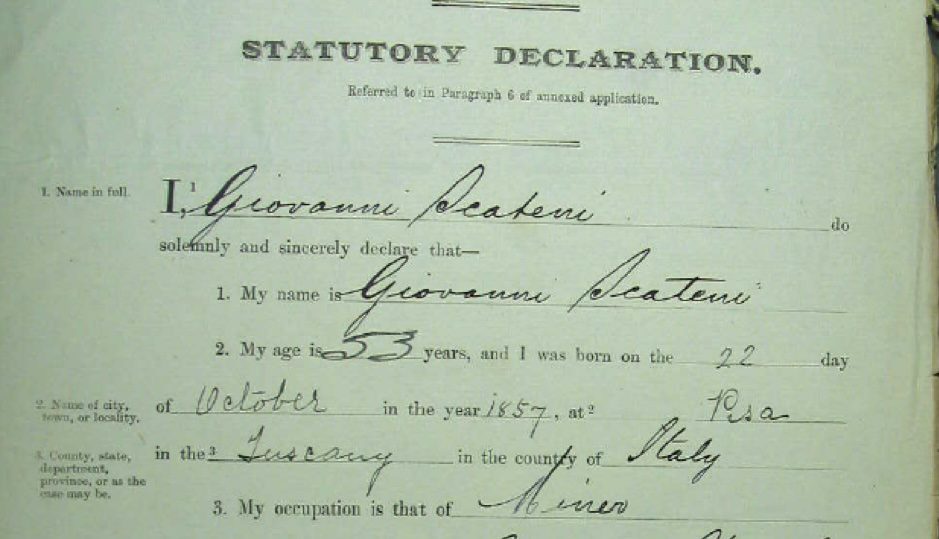 STATUTORY DECLARATION.
Referred to in Paragraph 6 of annexed application.
1. Name in full. I,¹ Giovanni Scateni do
solemnly and sincerely declare that—
1. My name is Giovanni Scateni
2. My age is 53 years, and I was born on the 22 day
2. Name of city, town, or locality. of October in the year 1857, at ² Pisa
3. County, state, department, province, or as the case may be. in the ³ Tuscany in the country of Italy
3. My occupation is that of Miner